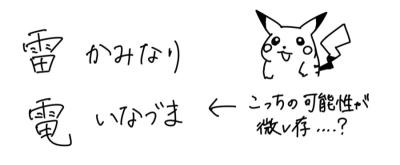 雷 かみなり
電 いなづま ← こっちの可能性が
微レ存....?